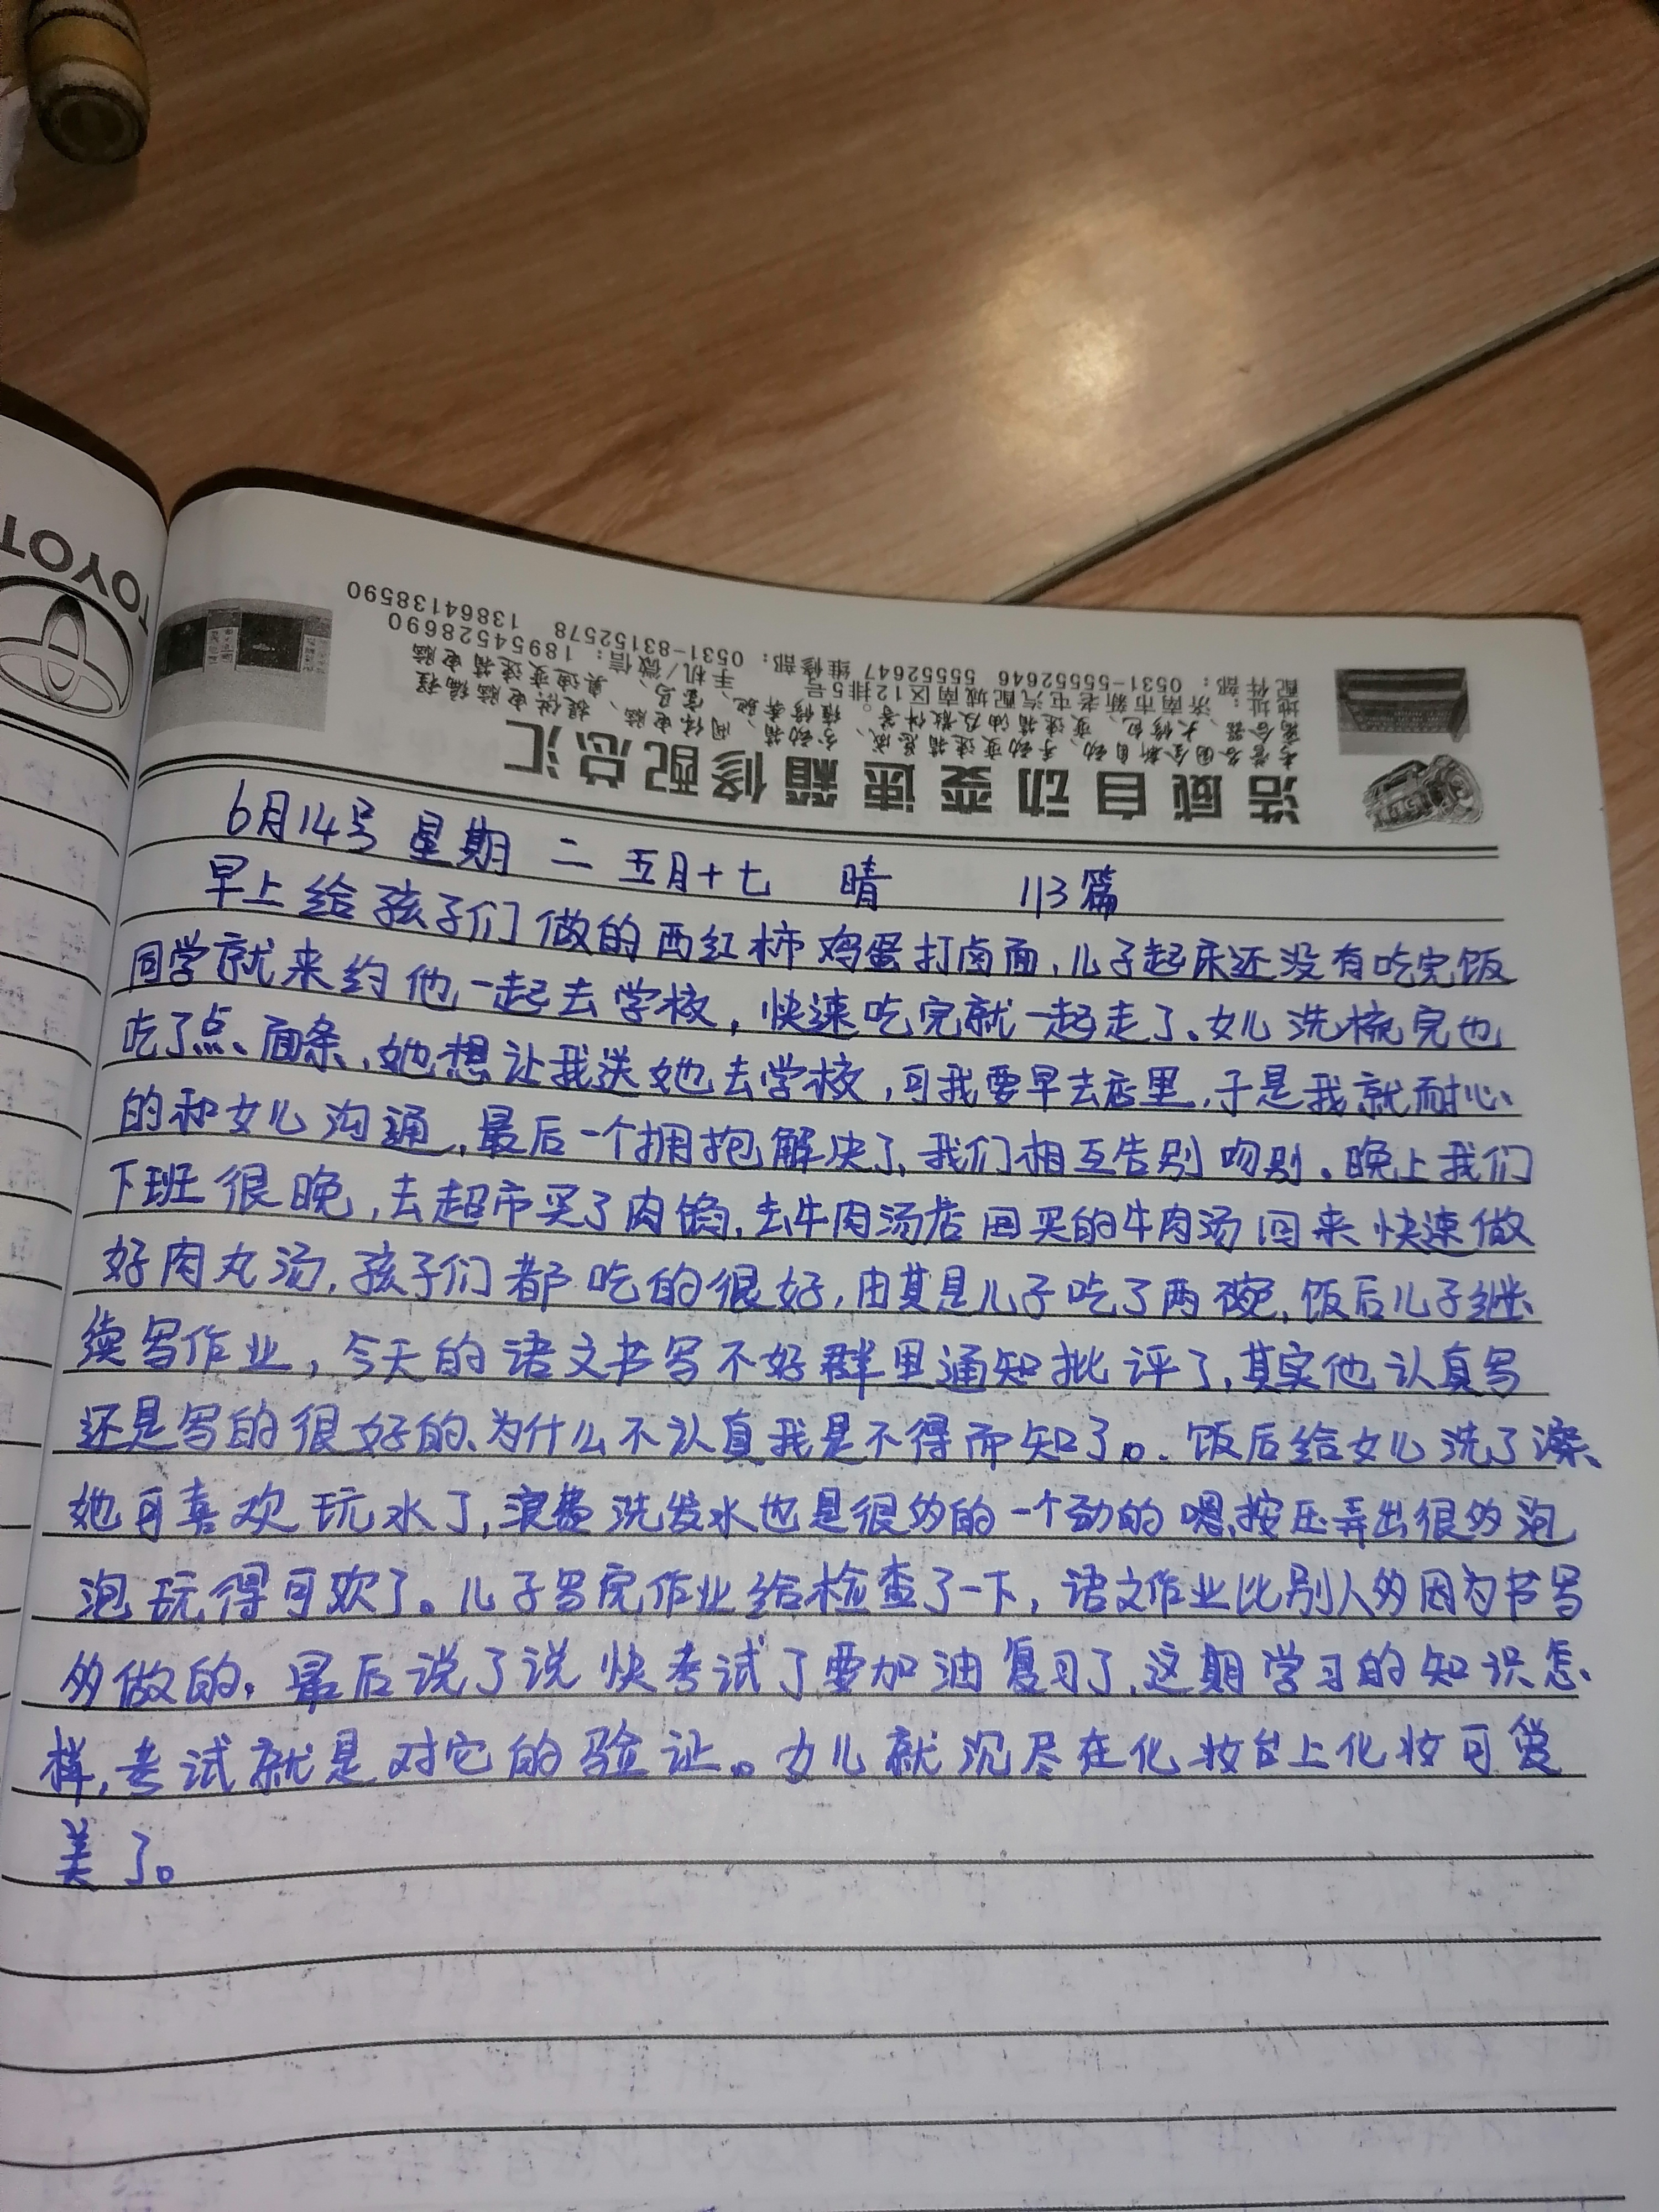 TOYOT
浩威自动变速箱修配总汇
地址：济南市新老屯汽配城南区12排5号
配件部：0531-55552646 55552647 维修部：0531-83152578 13864138590
手机/微信：18954528690
6月14号 星期二 五月十七 晴 113篇
早上给孩子们做的西红柿鸡蛋打卤面，儿子起床还没有吃完饭
同学就来约他一起去学校，快速吃完就一起走了、女儿洗梳完也
吃了点面条，她想让我送她去学校，可我要早去店里，于是我就耐心
的和女儿沟通，最后一个拥抱解决了，我们相互告别吻别。晚上我们
下班很晚，去超市买了肉馅，去牛肉汤店回买的牛肉汤回来快速做
好肉丸汤，孩子们都吃的很好，由其是儿子吃了两碗，饭后儿子继
续写作业，今天的语文书写不好群里通知批评了，其实他认真写
还是写的很好的、为什么不认真我是不得而知了。饭后给女儿洗了澡、
她可喜欢玩水了，浪费洗发水也是很多的一个劲的嗯，按压弄出很多泡
泡玩得可欢了。儿子写完作业给检查了一下，语文作业比别人多因为书写
多做的，最后说了说快考试了要加油复习了，这期学习的知识怎
样，考试就是对它的验证。女儿就沉尽在化妆台上化妆可爱
美了。